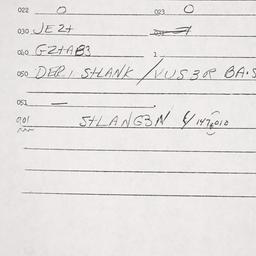 022 O 023 O
030 JE2t
040 GZtAB3
050 DER. StLANK / VUS3R BA.S
051 —
StLANG3N 4/147601 0